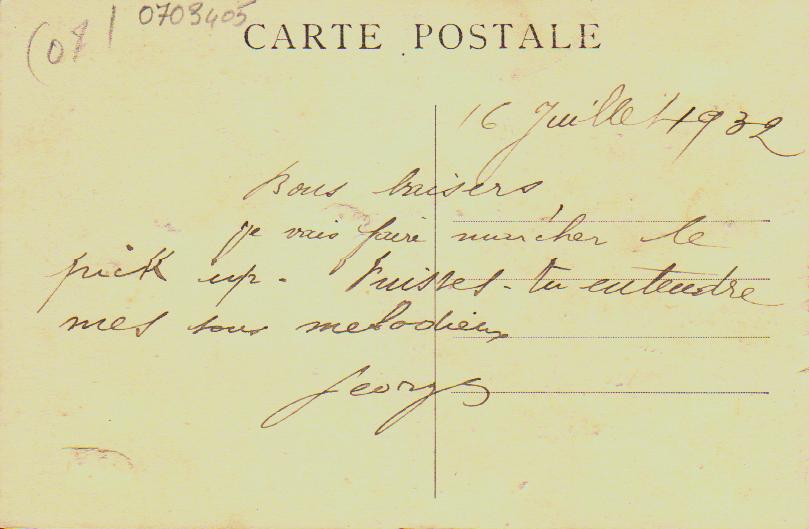 (08) 0703405
CARTE POSTALE
16 Juillet 1932
Bons baisers,
je vais faire marcher le
pick up. Puisses-tu entendre
mes sons melodieux
Georges